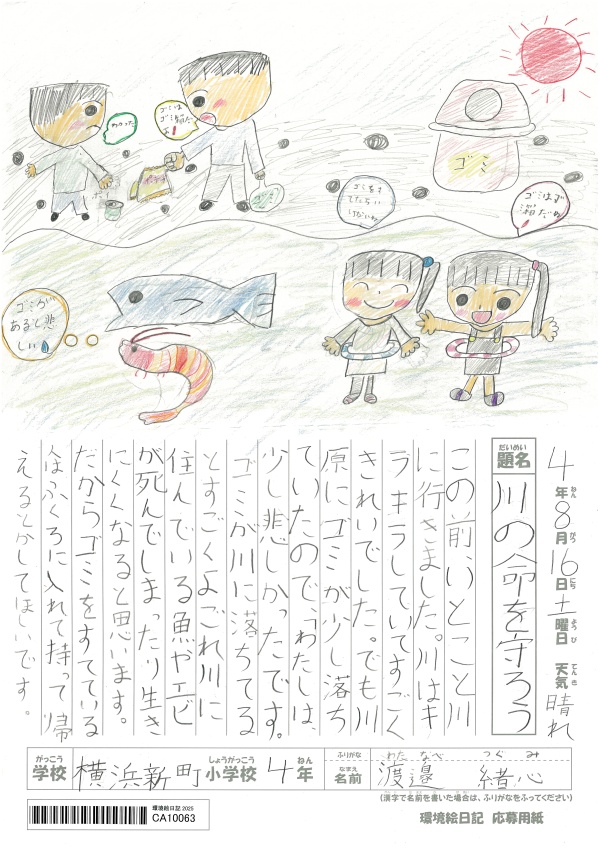 わかった
ゴミは
ゴミ箱だ
よ!
ポテチ
ゴミ
ゴミ
ゴミをす
てたらい
けないね
ゴミはゴ
ミ箱だね
ゴミが
あると悲
しい
4年8月16日土曜日 天気晴れ
ねん がつ にち ようび てんき
だいめい
題名
川の命を守ろう
この前、いとこと川
に行きました。川はキ
ラキラしていてすごく
きれいでした。でも川
原にゴミが少し落ち
ていたので、わたしは、
少し悲しかったです。
ゴミが川に落ちてる
とすごくよごれ川に
住んでいる魚やエビ
が死んでしまったり生き
にくくなると思います。
だからゴミをすてている
人はふくろに入れて持って帰
えるとかしてほしいです。
がっこう しょうがっこう ねん
学校 横浜新町小学校 4年
ふりがな わたなべ つぐみ
なまえ
名前 渡邉 緒心
(漢字で名前を書いた場合は、ふりがなをふってください)
環境絵日記 2025
CA10063
環境絵日記 応募用紙